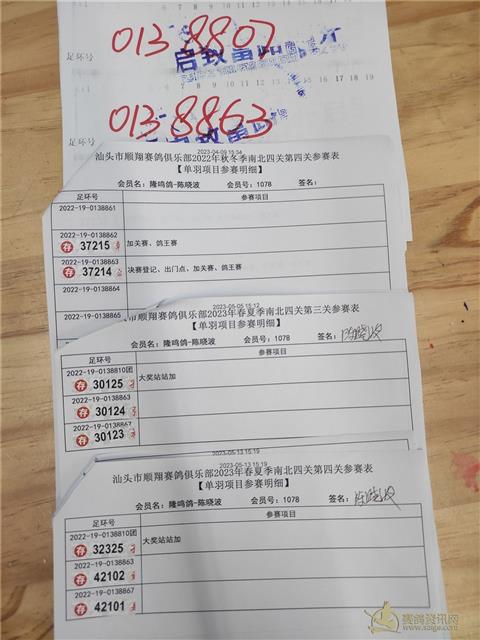 足环号
0138807
足环号
15 16 17 18 19
0138863
2023-04-09 15:34
汕头市顺翔赛鸽俱乐部2022年秋冬季南北四关第四关参赛表
【单羽项目参赛明细】
会员名：隆鸣鸽-陈晓波 会员号：1078 签名：
足环号 参赛项目
2022-19-0138861
2022-19-0138862
存 37215 加关赛、鸽王赛
2022-19-0138863
存 37214 决赛登记、出门点、加关赛、鸽王赛
2022-19-0138864
2022-19-0138865
2023-05-05 15:12
市顺翔赛鸽俱乐部2023年春夏季南北四关第三关参赛表
【单羽项目参赛明细】
会员名：隆鸣鸽-陈晓波 会员号：1078 签名：陈晓波
足环号 参赛项目
2022-19-0138810团
存 30125 大奖站站加
2022-19-0138863
存 30124
2022-19-0138867
存 30123
2023-05-13 15:19
2023-05-13 15:19
汕头市顺翔赛鸽俱乐部2023年春夏季南北四关第四关参赛表
【单羽项目参赛明细】
会员名：隆鸣鸽-陈晓波 会员号：1078 签名：陈晓波
足环号 参赛项目
2022-19-0138810团
存 32325 大奖站站加
2022-19-0138863
存 42102
2022-19-0138867
存 42101
赛鸽资讯网
www.saige.com